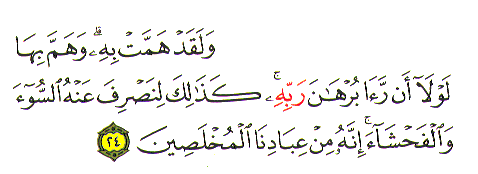 وَلَقَدۡ هَمَّتۡ بِهِۦۖ وَهَمَّ بِهَا
لَوۡلَآ أَن رَّءَا بُرۡهَٰنَ رَبِّهِۦۚ كَذَٰلِكَ لِنَصۡرِفَ عَنۡهُ ٱلسُّوٓءَ
وَٱلۡفَحۡشَآءَۚ إِنَّهُۥ مِنۡ عِبَادِنَا ٱلۡمُخۡلَصِينَ ٢٤